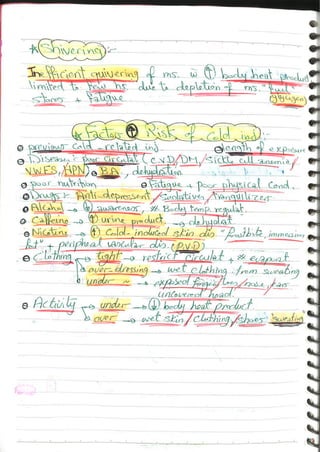 * Shivering :-
Inefficient quivering of ms. w̄ ↑ body heat product
limited to few hs. due to depletion of ms. fuel
stores + fatigue. (glycogen)
* Factors ↑ Risk of Cold inj :-
previous cold-related inj. length of exposure
Diseases: poor circulat (C.V.D/DM/Sickle cell anemia/
HPN B.A. dehydration
poor nutrition Fatigue + poor physical Cond.
Drugs: Anti-depressent/Sedatives/Tranquillizer
Alcohol → awareness, # Body temp. regulat.
Caffeine → ↑ urine product → dehydrat
Nicotine → ↑ Cold-induced skin dis. frostbite, immersion
ft" + peripheral vascular dis. (P.V.D)
Clothing → tight → restrict circulat + # evaporat
over-dressing → wet clothing from sweating
under ~ → exposed fingers/toes/nose/ear
uncovered head.
Activity → under → ↓ body heat product
over → wet skin/clothing/shoes sweating